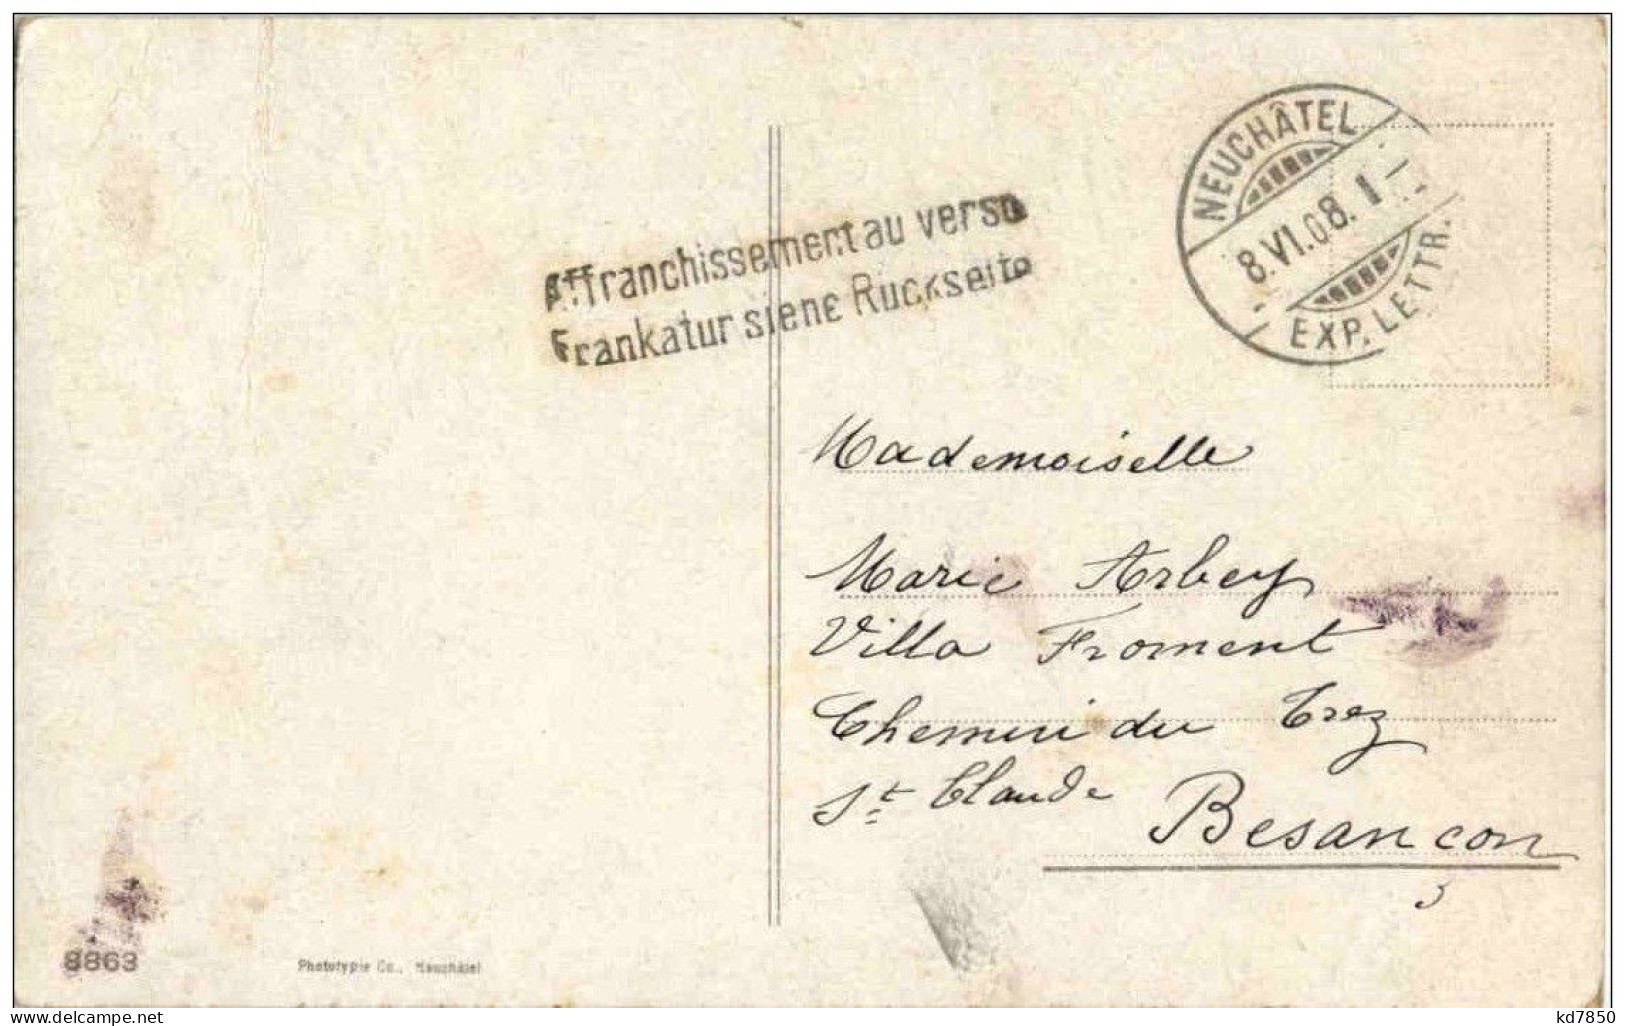 Affranchissement au verso
Frankatur siehe Rückseite
NEUCHÂTEL
8.VI.08. I
EXP. LETTR.
Mademoiselle
Marie Arbey
Villa Froment
Chemin du Trez
St Claude
Besançon
8863
Phototypie Co., Neuchâtel
delcampe.net
kd7850